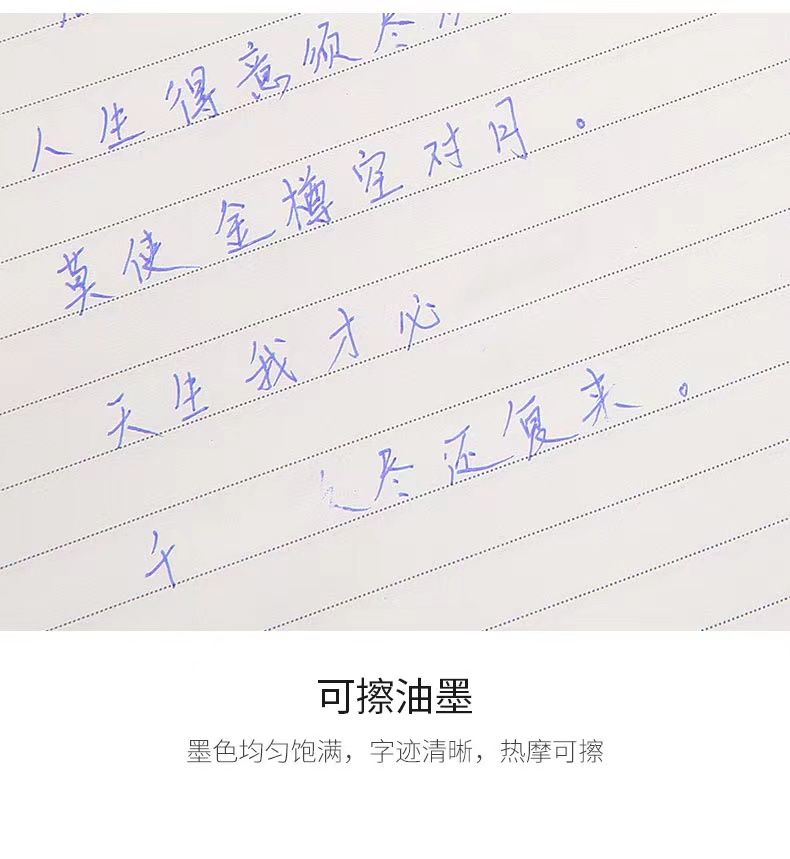 人生得意须尽
莫使金樽空对月。
天生我才必
千 尽还复来。
可擦油墨
墨色均匀饱满，字迹清晰，热摩可擦